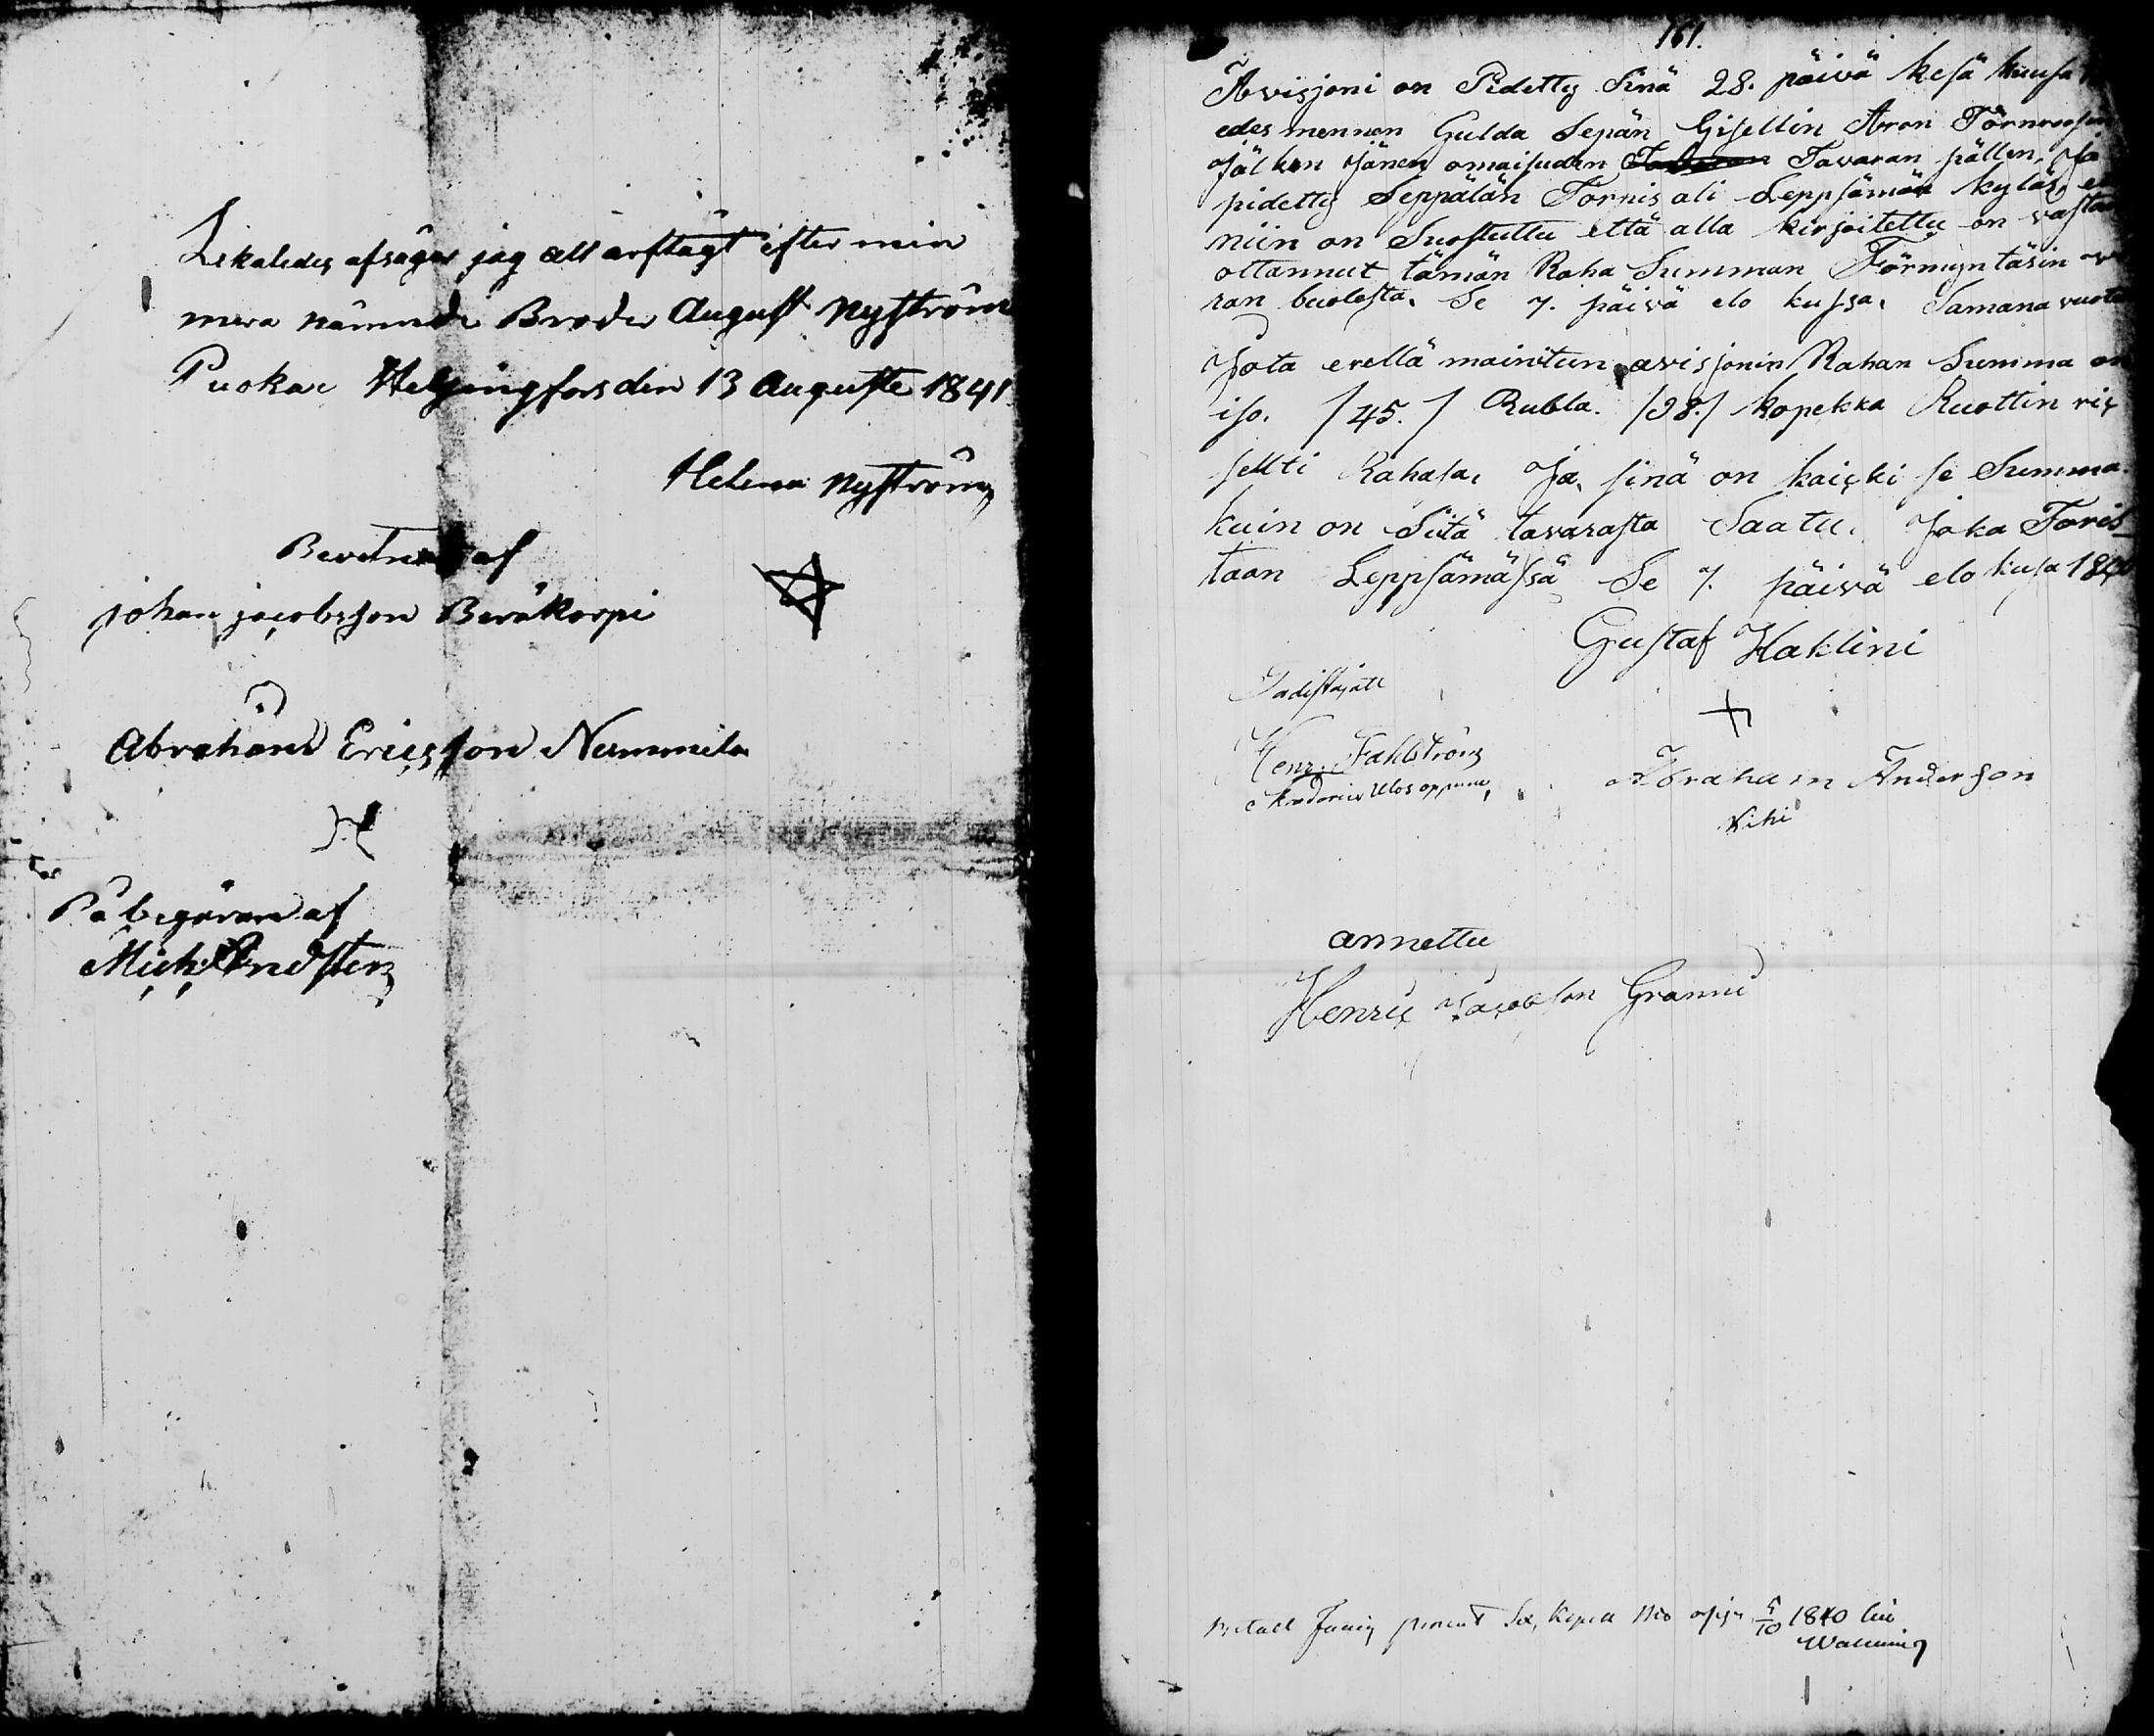 Likaledes afsäger jag all arfstagt efter min
mera nämnde Broder August Nyström
Puokar Helsingfors den 13 Auguste 1841
Helena Nyström
af
johan jacobsson Beräkorpi
Abraham Ericsson Nummila
På begäran af
Mich Lindsten
161.
Avisjoni on Pidetty Sinä 28. päivä kesä kuusa
edes mennen Gulda Sepän Gisellin Aron
Jälken Jänen omaisuden Tavaran pällen, Ja
pidetty Seppälän Tornis ali Leppsämän kyläs,
niin on Suostuttu että alla kirjoitettu on vastan
ottannut tämän Raha Summan Förmyntäsin
ran buolesta. Se 7. päivä elo kussa. Samana vuota
Jota erellä maintun avisjonin Rahan Summa on
iso. / 45. / Rubla. /98./ kopekka Ruottin rix
sellti Rahasa, Ja, sinä on kaicki se Summa
kuin on Siitä tavarasta Saatu. Joka Toris-
taan Leppsämässä Se 7. päivä elo kusa 1840
Gustaf Haklini
Tadistajatt
Henr. Fahlström
Abraham Anderson
Vihi
annettu
Henric Jacobson Grannu
1840